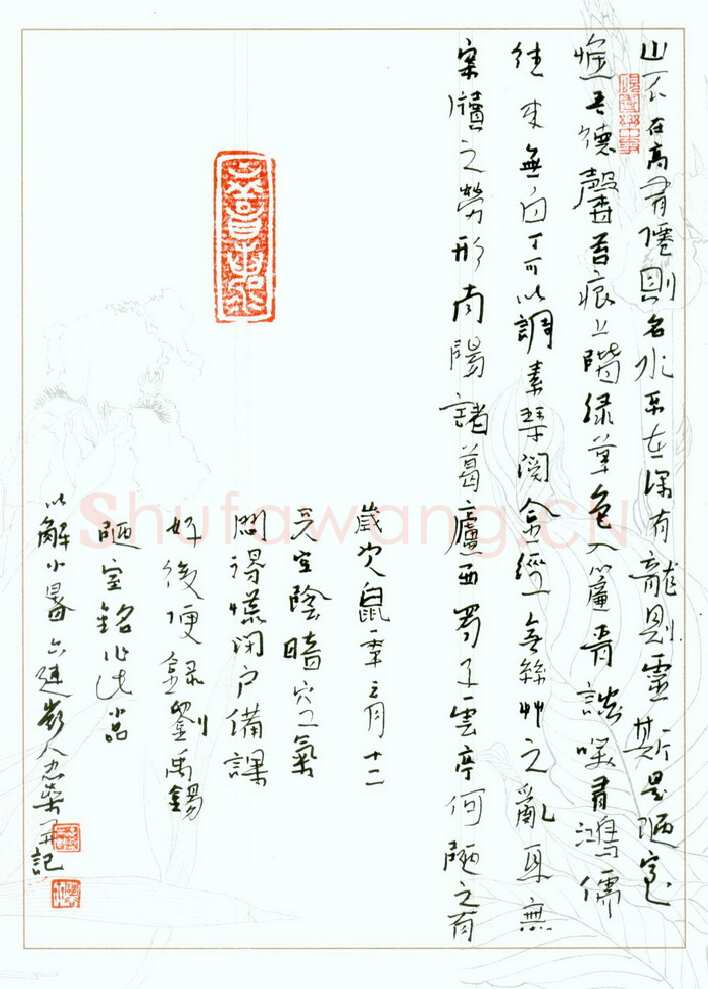 山不在高有僊則名水不在深有龍則靈斯是陋室
惟吾德馨苔痕上階綠草色入簾青談笑有鴻儒
往來無白丁可以調素琴閱金經無絲竹之亂耳無
案牘之勞形南陽諸葛廬西蜀子雲亭何陋之有
歲次鼠季六月十二
天空陰暗空氣
悶濕慌閑户備課
好後便錄劉禹錫
陋室銘作此品
以解小暑
Shufawang.CN